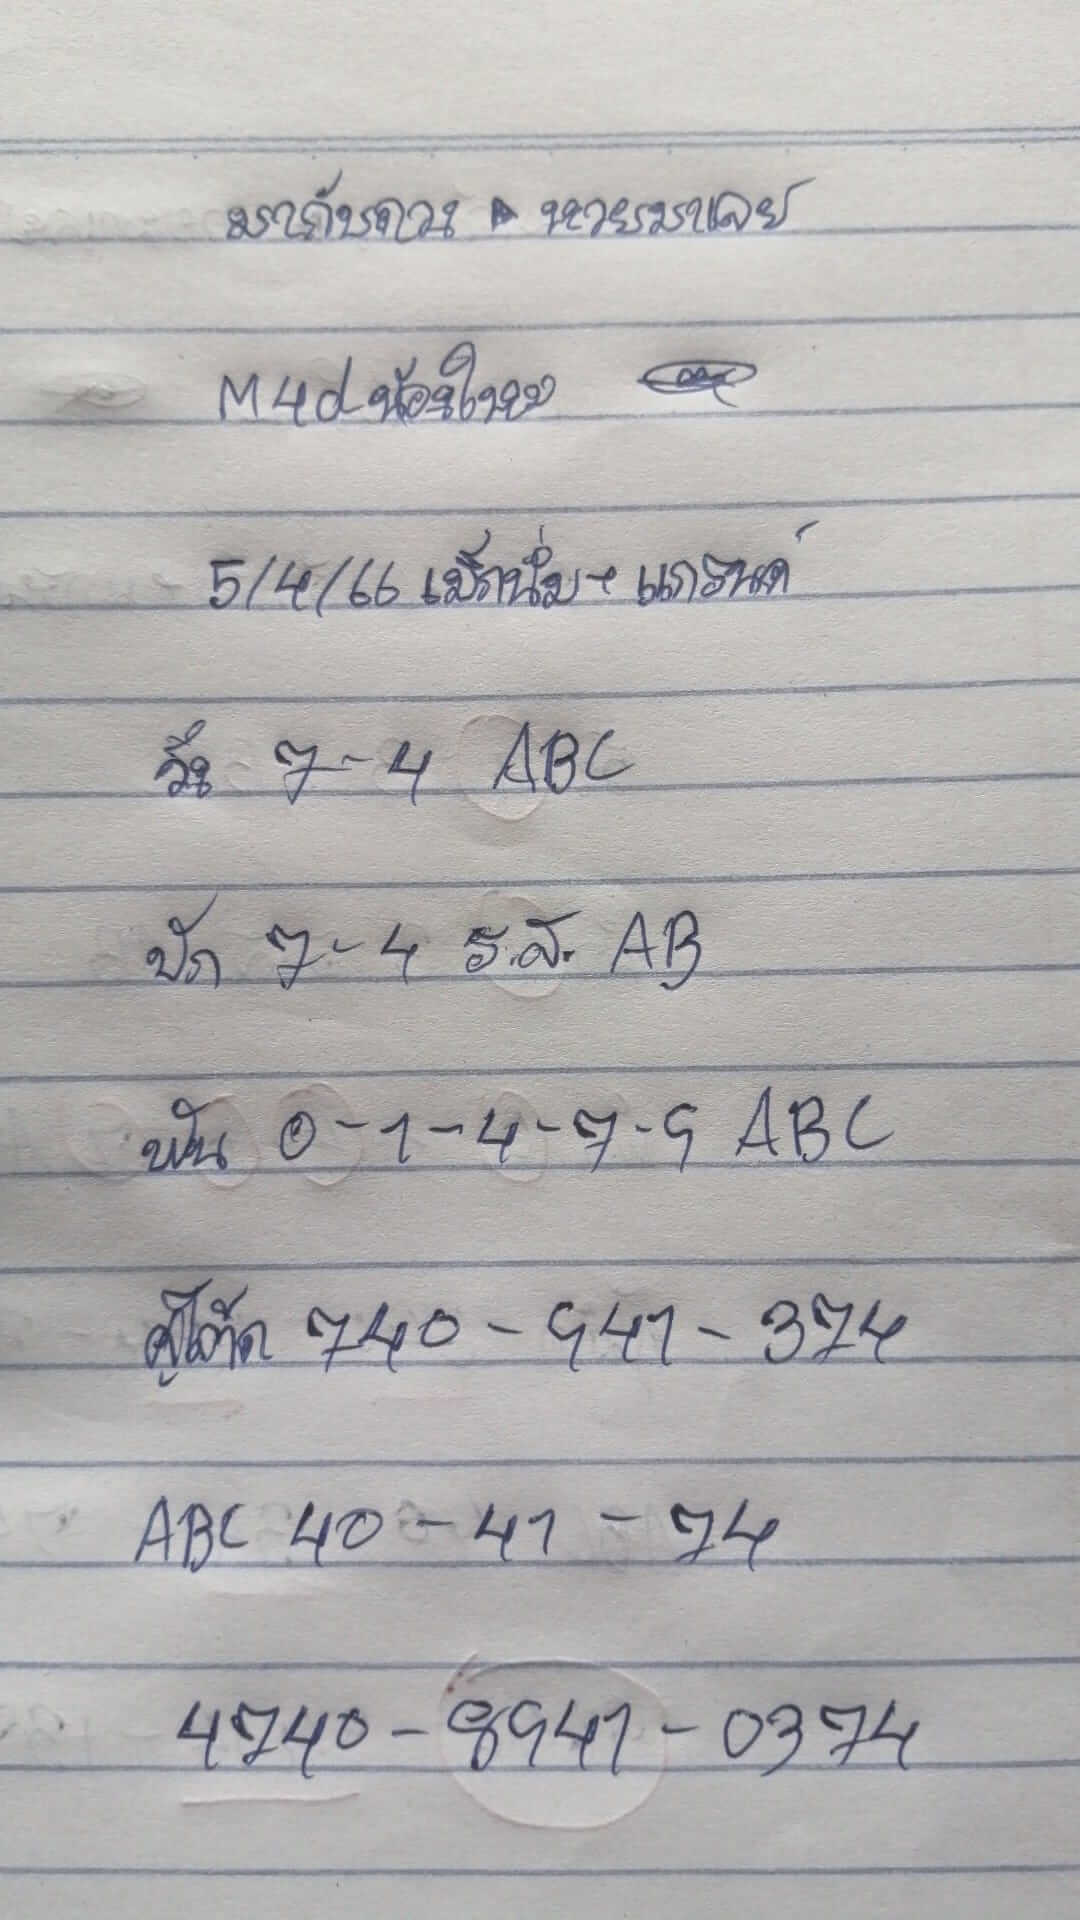 มากับดวง ▶ หวยมาเลย์
M4d น้องใหม่
5/4/66 แม็กนั่ม + แกรนด์
วิ่น 7-4 ABC
ปัก 7-4 ร.ส. AB
ฟัน 0-1-4-7-9 ABC
คู่โต๊ด 740-941-374
ABC 40-41-74
4740-8941-0374